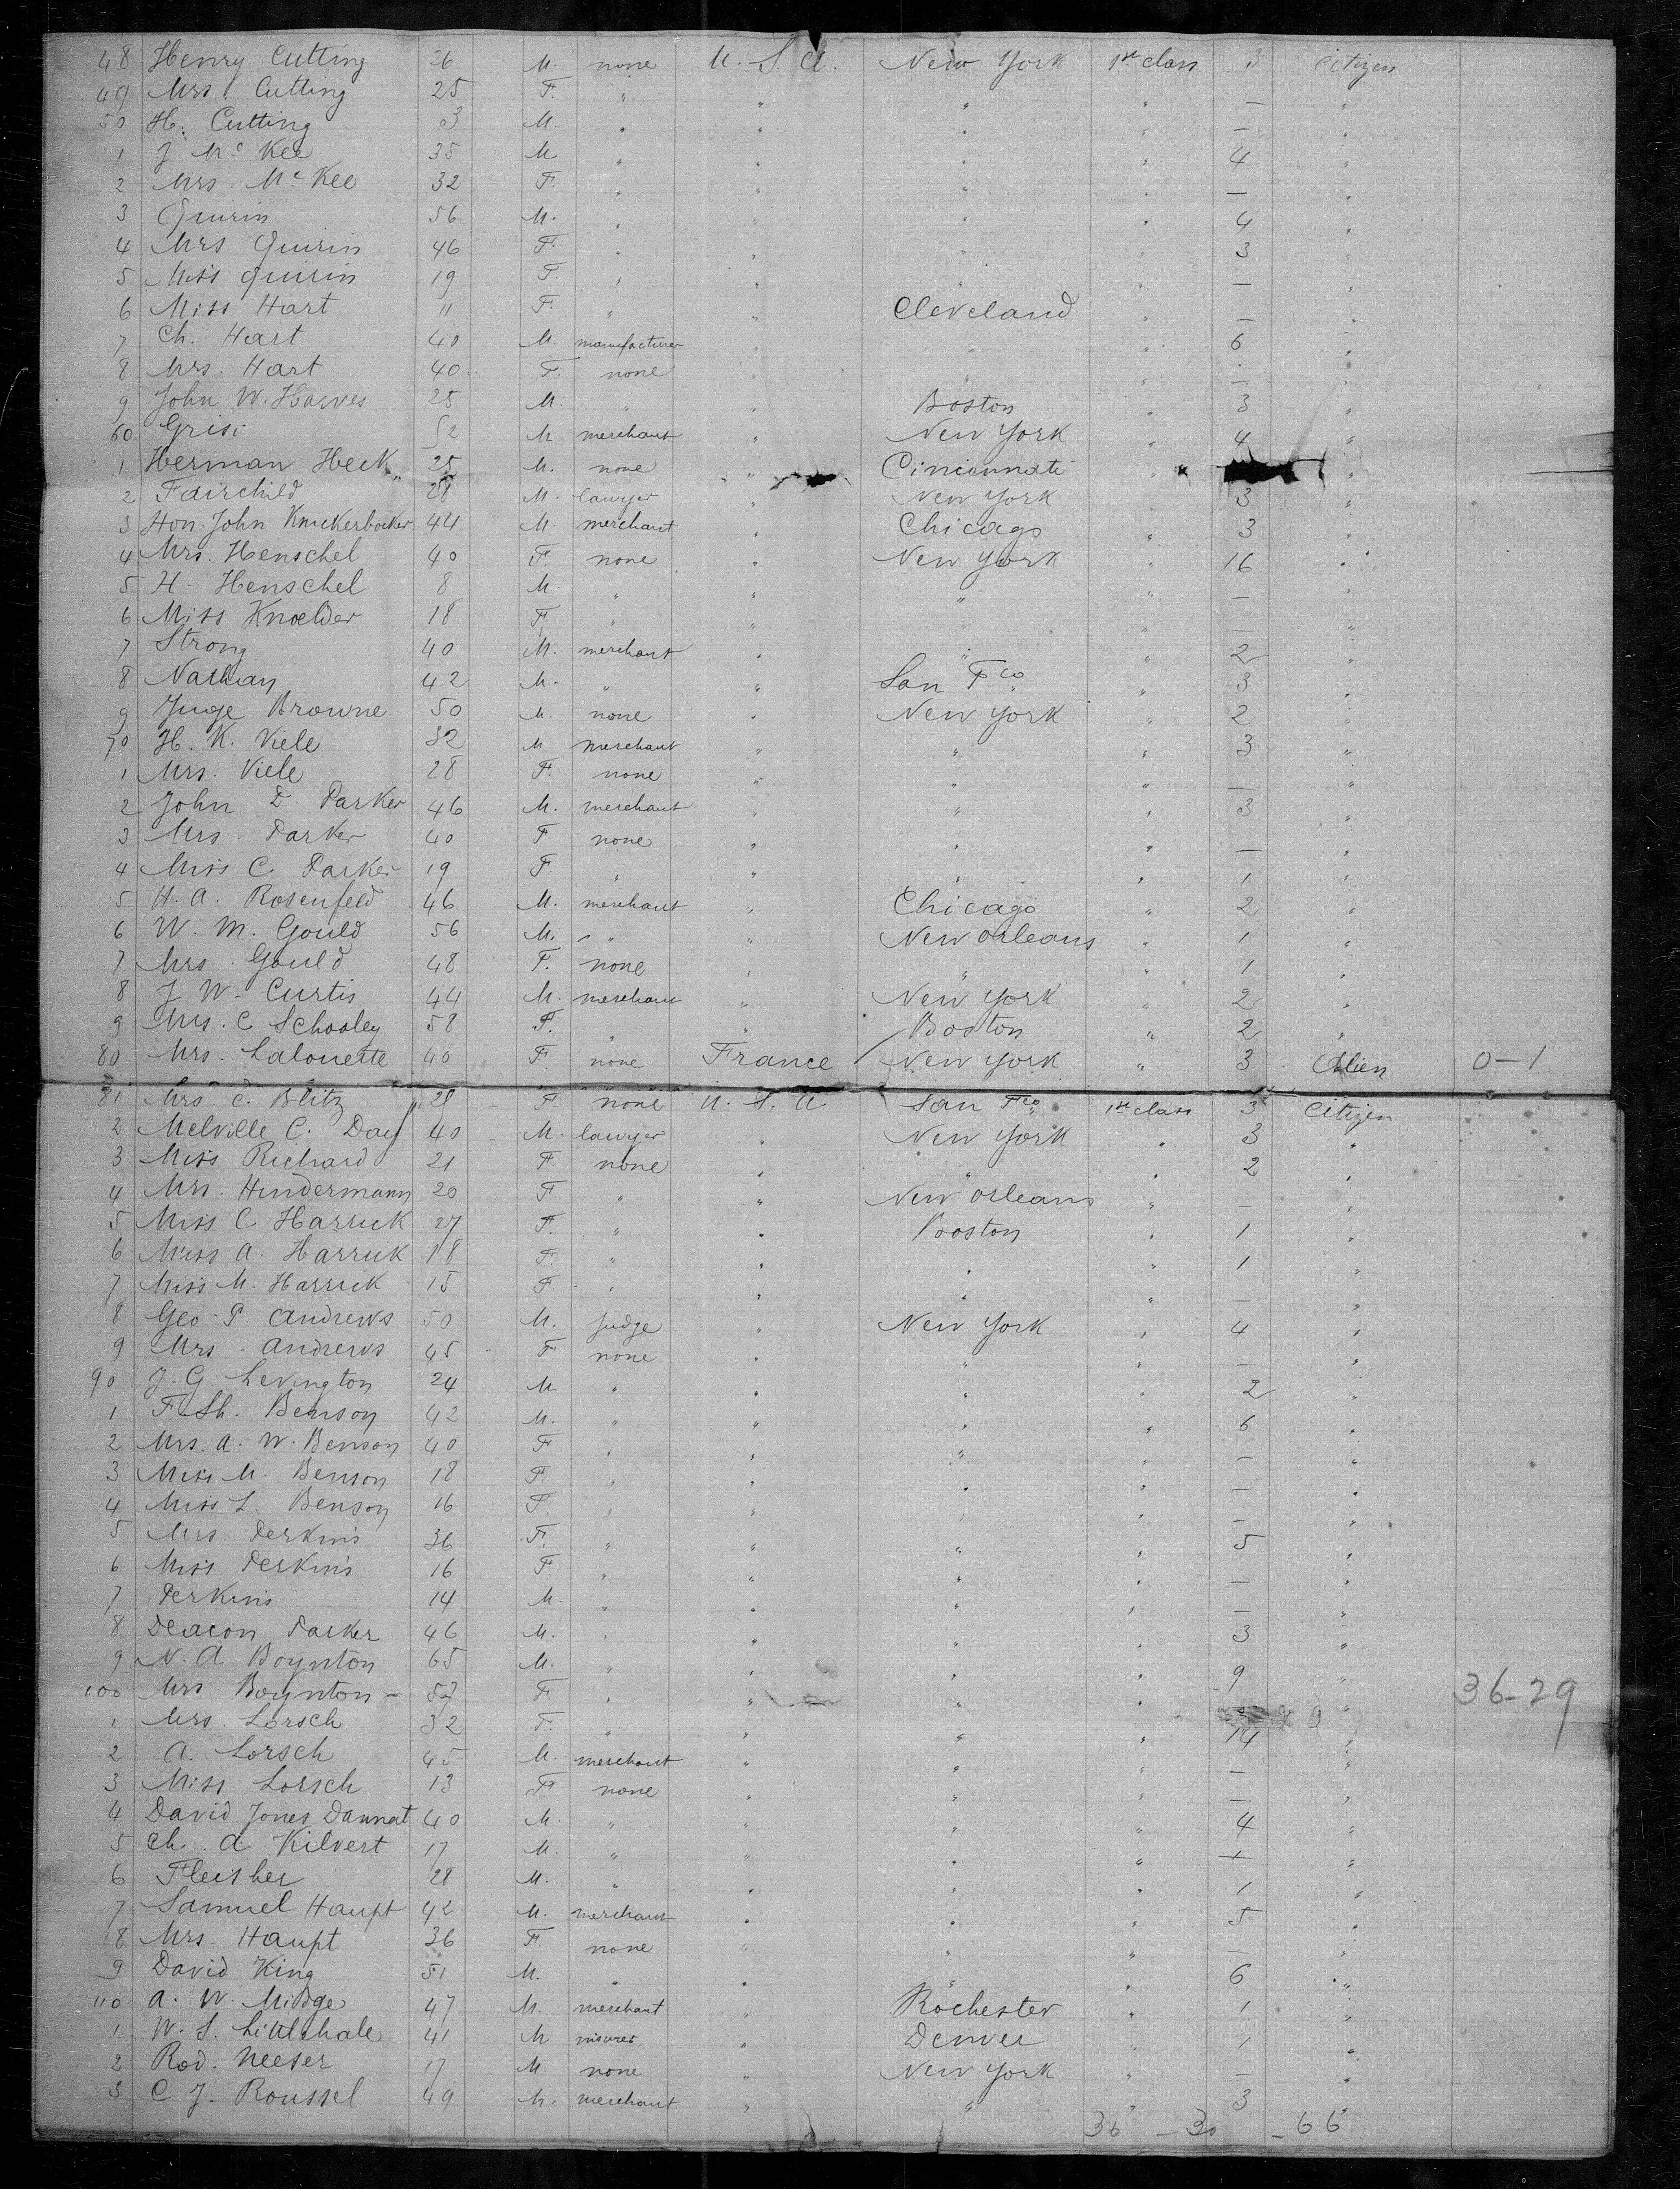 48 Henry Cutting 26 M. none U. S. A. New York 1st class 3 Citizen
49 Mrs. Cutting 25 F. " " " " — "
50 H. Cutting 3 M. " " " " — "
1 J Mc Kee 35 M " " " " 4 "
2 Mrs. Mc Kee 32 F. " " " " — "
3 Quirin 56 M. " " " " 4 "
4 Mrs Quirin 46 F. " " " " 3 "
5 Miss Quirin 19 F. " " " " — "
6 Miss Hart 11 F. " " Cleveland " — "
7 Ch. Hart 40 M. manufacturer " " " 6 "
8 Mrs. Hart 40 F. none " " " — "
9 John W. Harves 25 M. " " Boston " 3 "
60 Grisi 52 M merchant " New York " 4 "
1 Herman Heck 25 M. none " Cincinnati "
2 Fairchild 28 M. lawyer New York " 3 "
3 Hon. John Knickerbocker 44 M. merchant " Chicago " 3 "
4 Mrs. Henschel 40 F. none " New York " 16 "
5 H. Henschel 8 M. " " " " — "
6 Miss Knoelder 18 F. " " " " — "
7 Strong 40 M. merchant " " " 2 "
8 Nathan 42 M. " " San Fco " 3 "
9 Juge Browne 50 M. none " New York " 2 "
70 H. K. Viele 32 M merchant " " " 3 "
1 Mrs. Viele 28 F. none " " " — "
2 John D. Parker 46 M. merchant " " " 3 "
3 Mrs. Parker 40 F none " " " — "
4 Miss C. Parker 19 F. " " " " 1 "
5 H. A. Rosenfeld 46 M. merchant " Chicago " 2 "
6 W. M. Gould 56 M. " " New Orleans " 1 "
7 Mrs. Gould 48 F. none " " " 1 "
8 J W. Curtis 44 M. merchant " New York " 2 "
9 Mrs. C Schooley 58 F. " " Boston " 2 "
80 Mrs. Lalouette 40 F. none France New York " 3 Alien 0-1
81 Mrs C. Blitz 28 F none U. S. A San Fco 1st class 3 Citizen
2 Melville C. Day 40 M. lawyer " New York " 3 "
3 Miss Richard 21 F. none " " " 2 "
4 Mrs. Hindermann 20 F. " " New Orleans " — "
5 Miss C Harrick 27 F. " " Boston " 1 "
6 Miss A. Harrick 18 F. " " " " 1 "
7 Miss M. Harrick 15 F. " " " " — "
8 Geo P. Andrews 50 M. Judge " New York " 4 "
9 Mrs. Andrews 45 F none " " " — "
90 J. G. Levington 24 M " " " " 2 "
1 F. Sh. Benson 42 M. " " " " 6 "
2 Mrs. A. W. Benson 40 F " " " " — "
3 Miss M. Benson 18 F. " " " " — "
4 Miss L. Benson 16 F. " " " " — "
5 Mrs. Perkins 36 F. " " " " 5 "
6 Miss Perkins 16 F " " " " — "
7 Perkins 14 M. " " " " — "
8 Deacon Parker 46 M. " " " " 3 "
9 N. A Boynton 65 M. " " " " 9 "
100 Mrs Boynton 57 F. " " " " " 36-29
1 Mrs. Lorsch 32 F. " " " " 14 "
2 A. Lorsch 45 M. merchant " " " — "
3 Miss Lorsch 13 F none " " " — "
4 David Jones Dannat 40 M. " " " " 4 "
5 Ch. A Kilvert 17 M. " " " " "
6 Fleisher 28 M. " " " " 1 "
7 Samuel Haupt 42 M. merchant " " " 5 "
8 Mrs. Haupt 36 F. none " " " — "
9 David King 51 M. " " " " 6 "
110 A. W. Midge 47 M. merchant " Rochester " 1 "
1 W. S. Littlehale 41 M " Denver " 1 "
2 Rod. Neeser 17 M. none " New York " — "
3 C. J. Roussel 49 M. merchant " " " 3 "
36 - 30 - 66